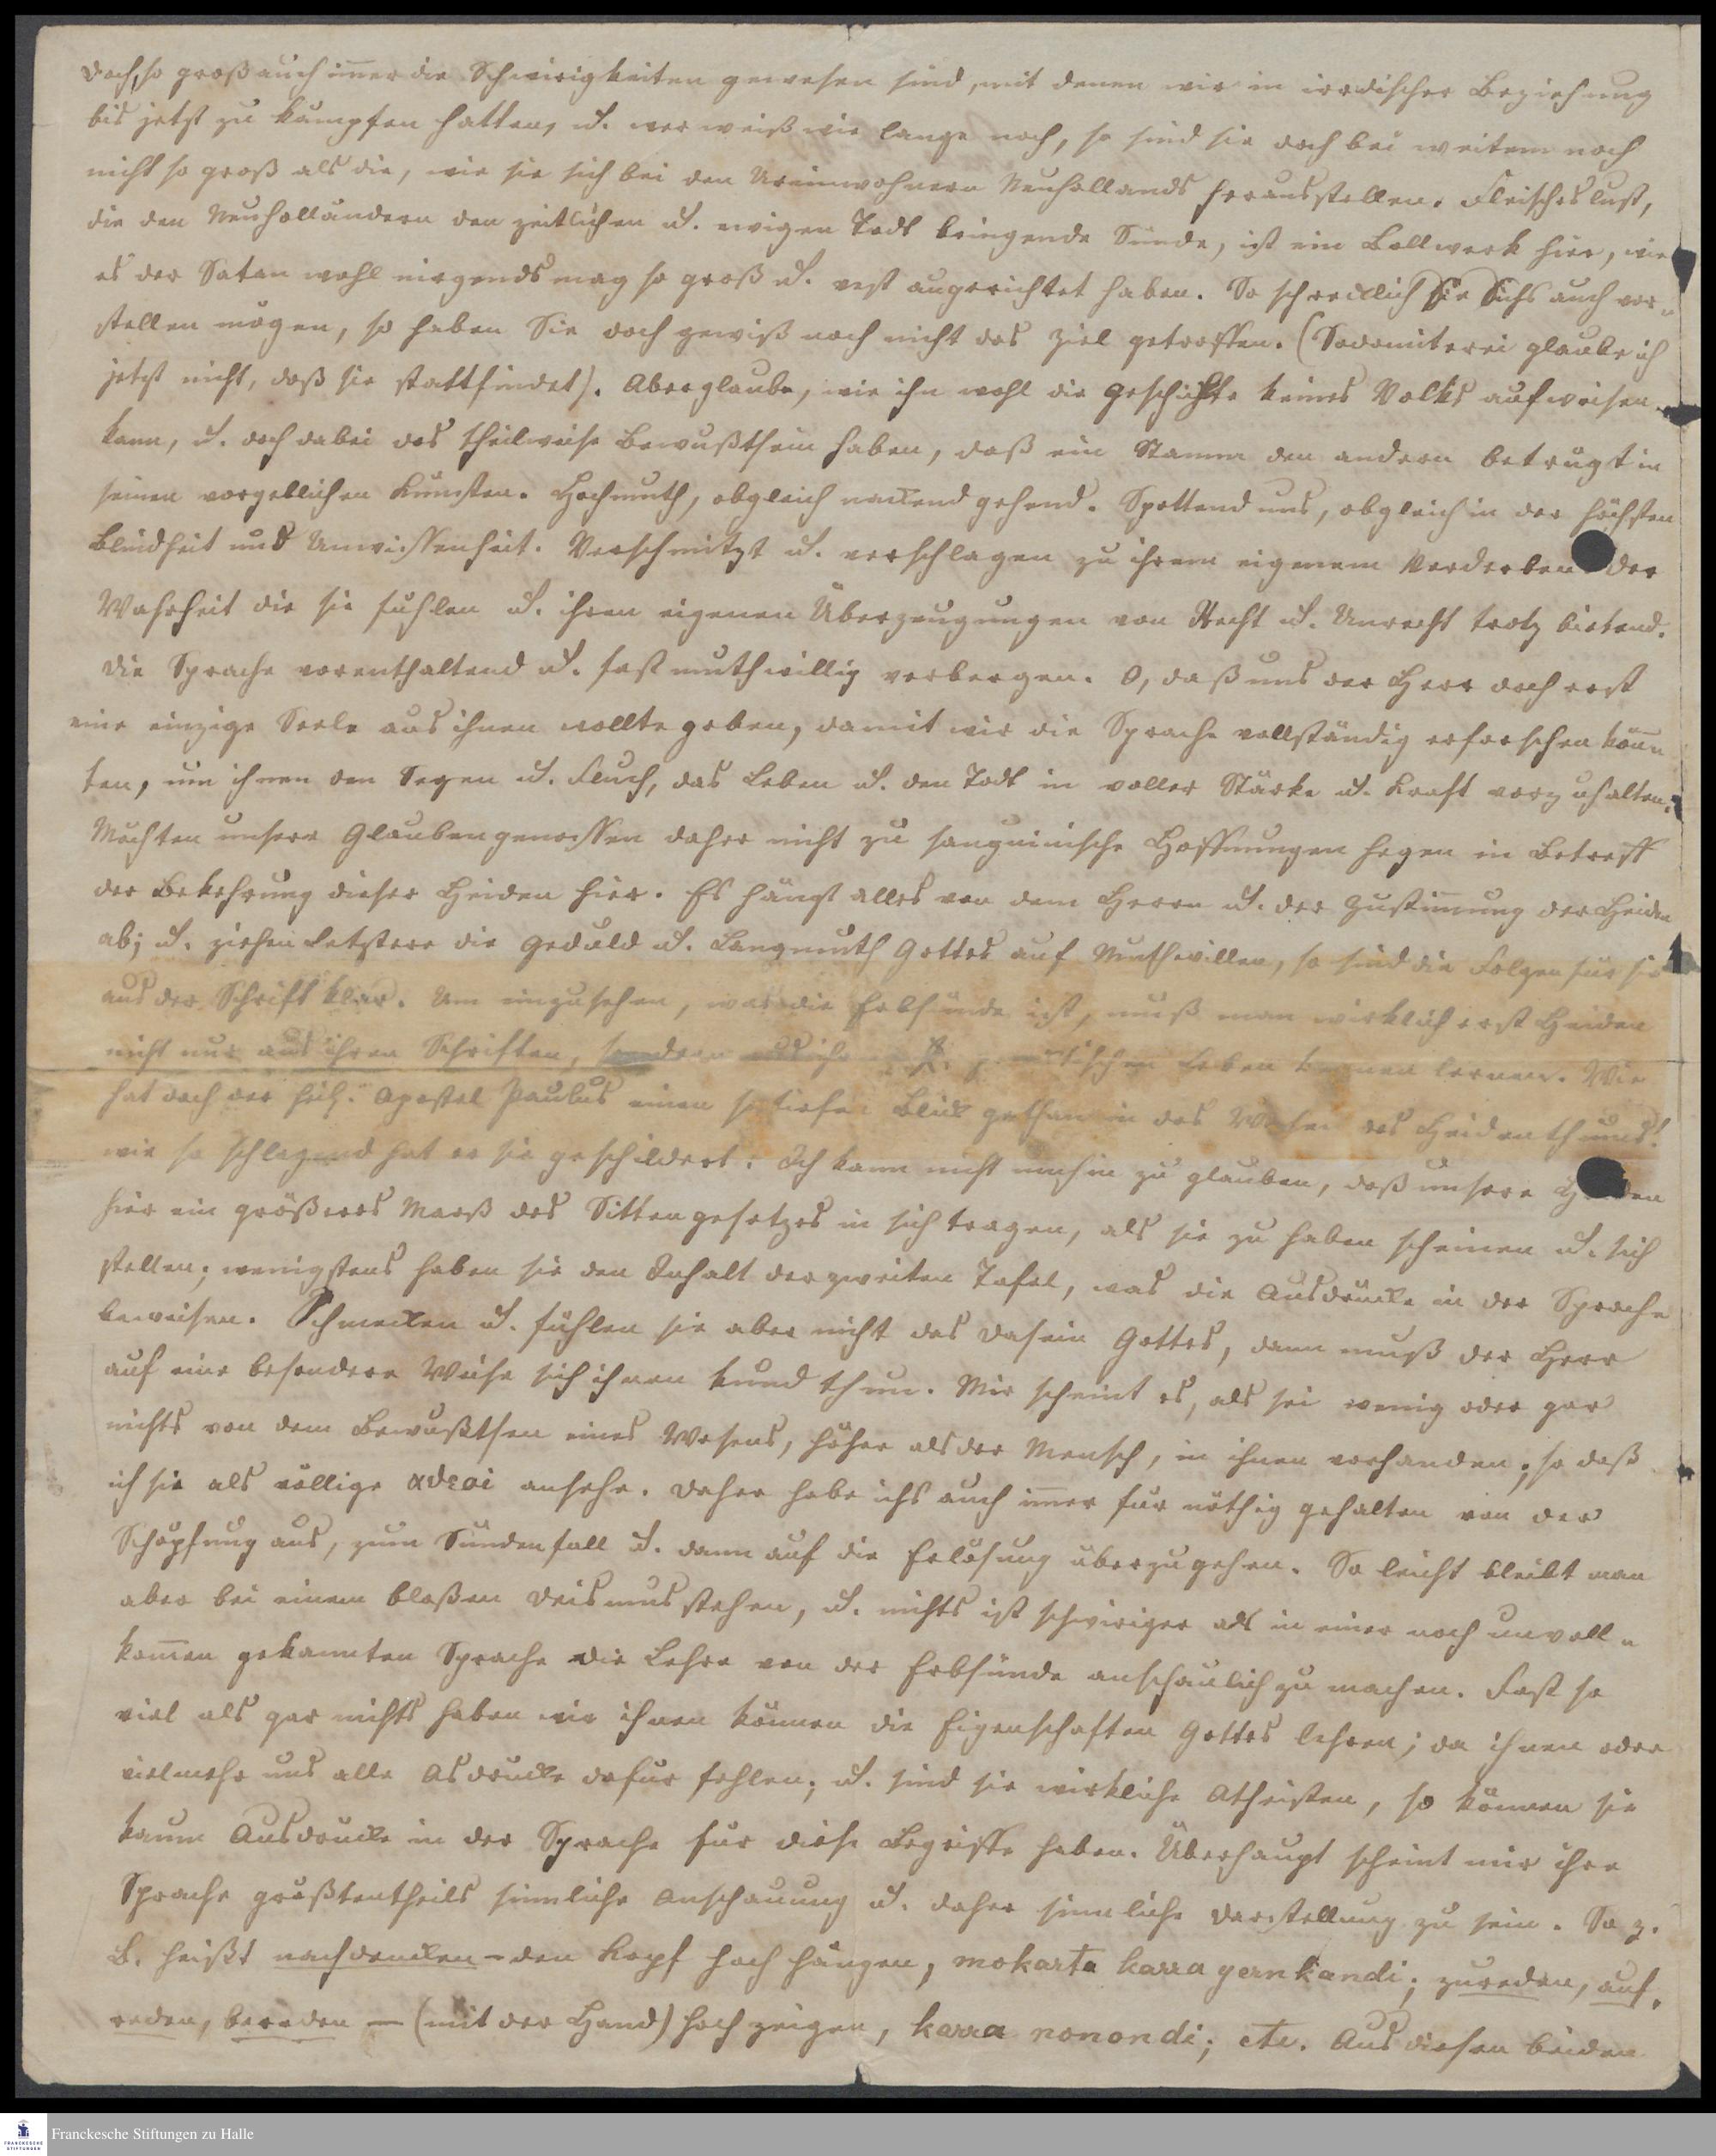 Doch, so groß auch im̅er die Schwirigkeiten gewesen sind, mit denen wir in irrdischer Beziehung
bis jetzt zu kämpfen hatten, u. wer weiß wie lange noch, so sind sie doch bei weitem noch
nicht so groß als die, wie sie sich bei den Ureinwohnern Neuhollands herausstellen. Fleischeslust,
die den Neuholländern den zeitlichen u. ewigen Todt bringende Sünde, ist ein Bollwerk hier, wie
es der Satan wohl nirgends mag so groß u. vest aufgerichtet haben. So schrecklich Sie Sichs auch vor-
stellen mögen, so haben Sie doch gewiß noch nicht das Ziel getroffen. (Sodomiterei glaube ich
jetzt nicht, daß sie stattfindet). Aberglaube, wie ihn wohl die Geschichte keines Volks aufweisen
kann, u. doch dabei das theilweise Bewußtsein haben, daß ein Stamm den andern betrügt in
seinen vorgeblichen Künsten. Hochmuth, obgleich nackend gehend. Spottend uns, obgleich in der höchsten
Blindheit und Unwissenheit. Verschmitzt u. verschlagen zu ihrem eigenem Verderben der
Wahrheit die sie fühlen u. ihren eigenen Überzeugungen von Recht u. Unrecht trotz bietend.
Die Sprache vorenthaltend u. fast muthwillig verbergen. O, daß uns der Herr doch erst
eine einzige Seele aus ihnen wollte geben, damit wir die Sprache vollständig erforschen kön̅n
ten, um ihnen den Segen u. Fluch, das Leben u. den Todt in voller Stärke u. Kraft vorzuhalten.
Möchten unsere Glaubengenossen daher nicht zu sanguinische Hoffnungen hegen in Betreff
der Bekehrung dieser Heiden hier. Es hängt alles von dem Herrn u. der Zustim̅ung der Heiden
ab; u. ziehen Letztere die Geduld u. Langmuth Gottes auf Muthwillen, so sind die Folgen für sie
aus der Schrift klar. Um einzusehen, was die Erbsünde ist, muß man wirklich erst Heiden
nicht nur aus ihren Schriften, sondern aus ihrem Leben kennen lernen. Wie
hat doch der heil. Apostel Paulus einen so tiefen Blick gethan in das Wesen des Heidenthums!
wie so schlagend hat er sie geschildert! Ich kann nicht umhin zu glauben, daß unsere Heiden
hier ein größeres Maaß des Sittengesetzes in sich tragen, als sie zu haben scheinen u. sich
stellen; wenigstens haben sie den Inhalt der zweiten Tafel, was die Ausdrücke in der Sprache
beweisen. Schmecken u. fühlen sie aber nicht das Dasein Gottes, dann muß der Herr
auf eine besondere Weise sich ihnen kund thun. Mir scheint es, als sei wenig oder gar
nichts von dem Bewußtsen eines Wesens, höher als der Mensch, in ihnen vorhanden; so daß
ich sie als völlige αθεοι ansehe. Daher habe ichs auch im̅er für nöthig gehalten von der
Schöpfung aus, zum Sündenfall u. dann auf die Erlösung überzugehen. So leicht bleibt man
aber bei einem bloßen Deismus stehen, u. nichts ist schwiriger als in einer noch unvoll-
kom̅en gekannten Sprache die Lehre von der Erbsünde anschaulich zu machen. Fast so
viel als gar nichts haben wir ihnen können die Eigenschaften Gottes lehren; da ihnen oder
vielmehr uns alle Asdrücke dafür fehlen; u. sind sie wirkliche Atheisten, so können sie
kaum Ausdrücke in der Sprache für diese Begriffe haben. Überhaupt scheint mir ihre
Sprache größtentheils sinnliche Anschauung u. daher sinnliche Darstellung zu sein. So z.
B. heißt nachdencken – den Kopf hoch hängen, mokarta karra yernkandi; zureden, auf-
reden, bereden — (mit der Hand) hoch zeigen, karra nonondi; etc. Aus diesen beiden
Franckesche Stiftungen zu Halle